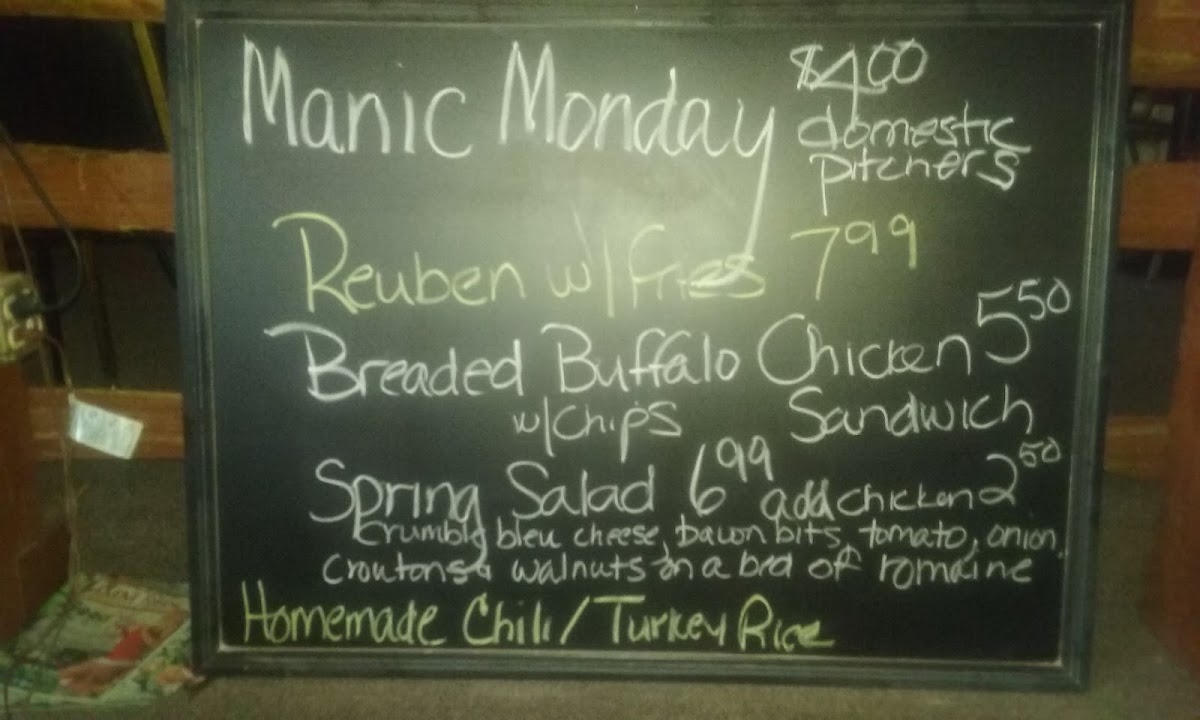 Manic Monday $4.00
domestic
pitchers
Reuben w/ Fries 7.99
Breaded Buffalo Chicken 5.50
w/chips Sandwich
Spring Salad 6.99 add chicken 2.50
Crumbly bleu cheese, bacon bits, tomato, onion,
croutons & walnuts on a bed of romaine
Homemade Chili / Turkey Rice